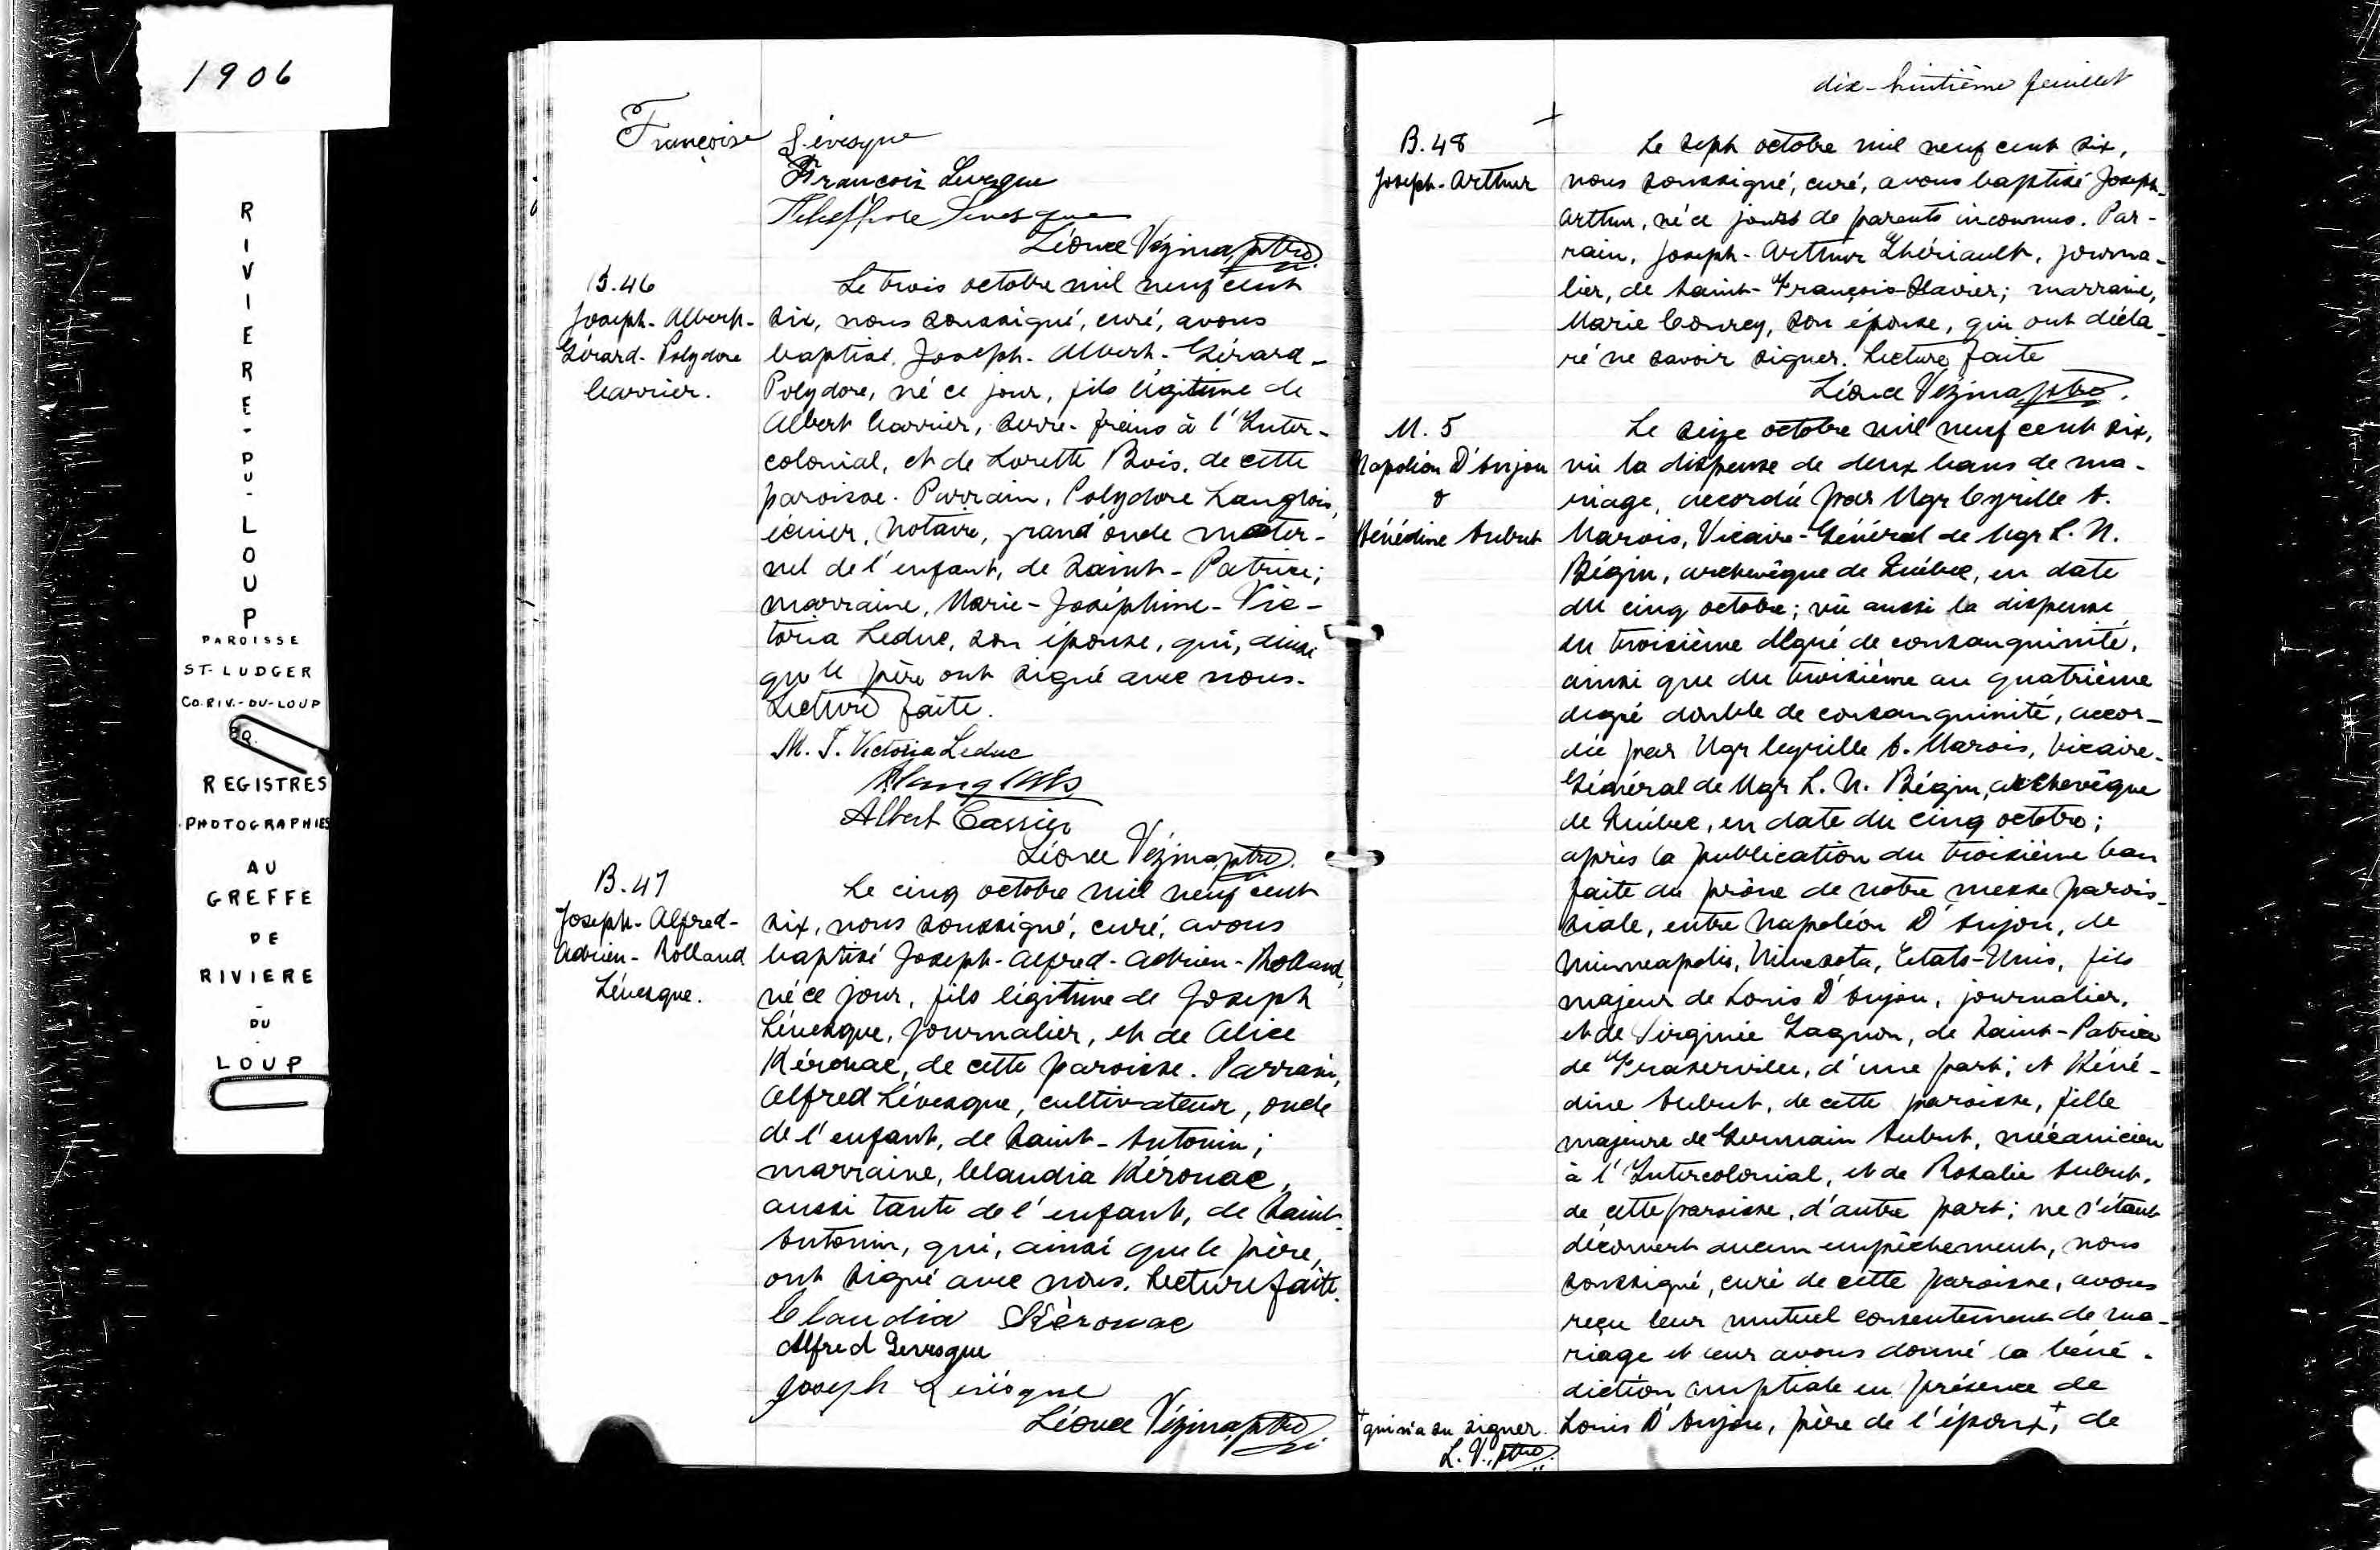 1906
RIVIERE-DU-LOUP
PAROISSE
ST-LUDGER
CO. RIV.-DU-LOUP
REGISTRES
PHOTOGRAPHIES
AU
GREFFE
DE
RIVIERE
-
DU
-
LOUP
Françoise Lévesque
François Levesque
Telesphore Levesque
Léonce Vézina, ptre
B.46
Joseph-Albert-
Gérard-Polydore
Carrier.
Le trois octobre mil neuf cent
six, nous soussigné, curé, avons
baptisé Joseph-Albert-Gérard-
Polydore, né ce jour, fils légitime de
Albert Carrier, serre-freins à l'Inter-
colonial, et de Lorette Bois, de cette
paroisse. Parrain, Polydore Langlois,
écuier, notaire, grand'oncle mater-
nel de l'enfant, de Saint-Patrice;
marraine, Marie-Joséphine-Vic-
toria Leduc, son épouse, qui, ainsi
que le père ont signé avec nous.
Lecture faite.
M. J. Victoria Leduc
P. Langlois
Albert Carrier
Léonce Vézina, ptre.
B.47
Joseph-Alfred-
Adrien-Rolland
Lévesque.
Le cinq octobre mil neuf cent
six, nous soussigné, curé, avons
baptisé Joseph-Alfred-Adrien-Rolland,
né ce jour, fils légitime de Joseph
Lévesque, journalier, et de Alice
Kérouac, de cette paroisse. Parrain,
Alfred Lévesque, cultivateur, oncle
de l'enfant, de Saint-Antonin;
marraine, Claudia Kérouac,
aussi tante de l'enfant, de Saint-
Antonin, qui, ainsi que le père,
ont signé avec nous. Lecture faite.
Claudia Kérouac
Alfred Levesque
Joseph Levésque
Léonce Vézina, ptre
dix-huitième feuillet
B.48
Joseph-Arthur
Le sept octobre mil neuf cent six,
nous soussigné, curé, avons baptisé Joseph-
Arthur, né ce jour de parents inconnus. Par-
rain, Joseph-Arthur Thériault, journa-
lier, de Saint-François-Xavier; marraine,
Marie Courcy, son épouse, qui ont décla-
ré ne savoir signer. Lecture faite
Léonce Vézina, ptre.
M. 5
Napoléon D'Anjou
&
Bénédine Aubut
Le seize octobre mil neuf cent six,
vu la dispense de deux bans de ma-
riage, accordée par Mgr Cyrille A.
Marois, Vicaire-Général de Mgr L. N.
Bégin, archevêque de Québec, en date
du cinq octobre; vu aussi la dispense
du troisième degré de consanguinité,
ainsi que du troisième au quatrième
degré double de consanguinité, accor-
dée par Mgr Cyrille A. Marois, Vicaire-
Général de Mgr L. N. Bégin, archevêque
de Québec, en date du cinq octobre;
après la publication du troisième ban
faite au prône de notre messe parois-
siale, entre Napoléon D'Anjou, de
Minneapolis, Minesota, Etats-Unis, fils
majeur de Louis D'Anjou, journalier,
et de Virginie Gagnon, de Saint-Patrice
de Fraserville, d'une part; et Béné-
dine Aubut, de cette paroisse, fille
majeure de Germain Aubut, mécanicien
à l'Intercolonial, et de Rosalie Aubut,
de cette paroisse, d'autre part; ne s'étant
découvert aucun empêchement, nous
soussigné, curé de cette paroisse, avons
reçu leur mutuel consentement de ma-
riage et leur avons donné la béné-
diction nuptiale en présence de
Louis D'Anjou, père de l'époux,+ de
+qui n'a su signer.
L. V., ptre.